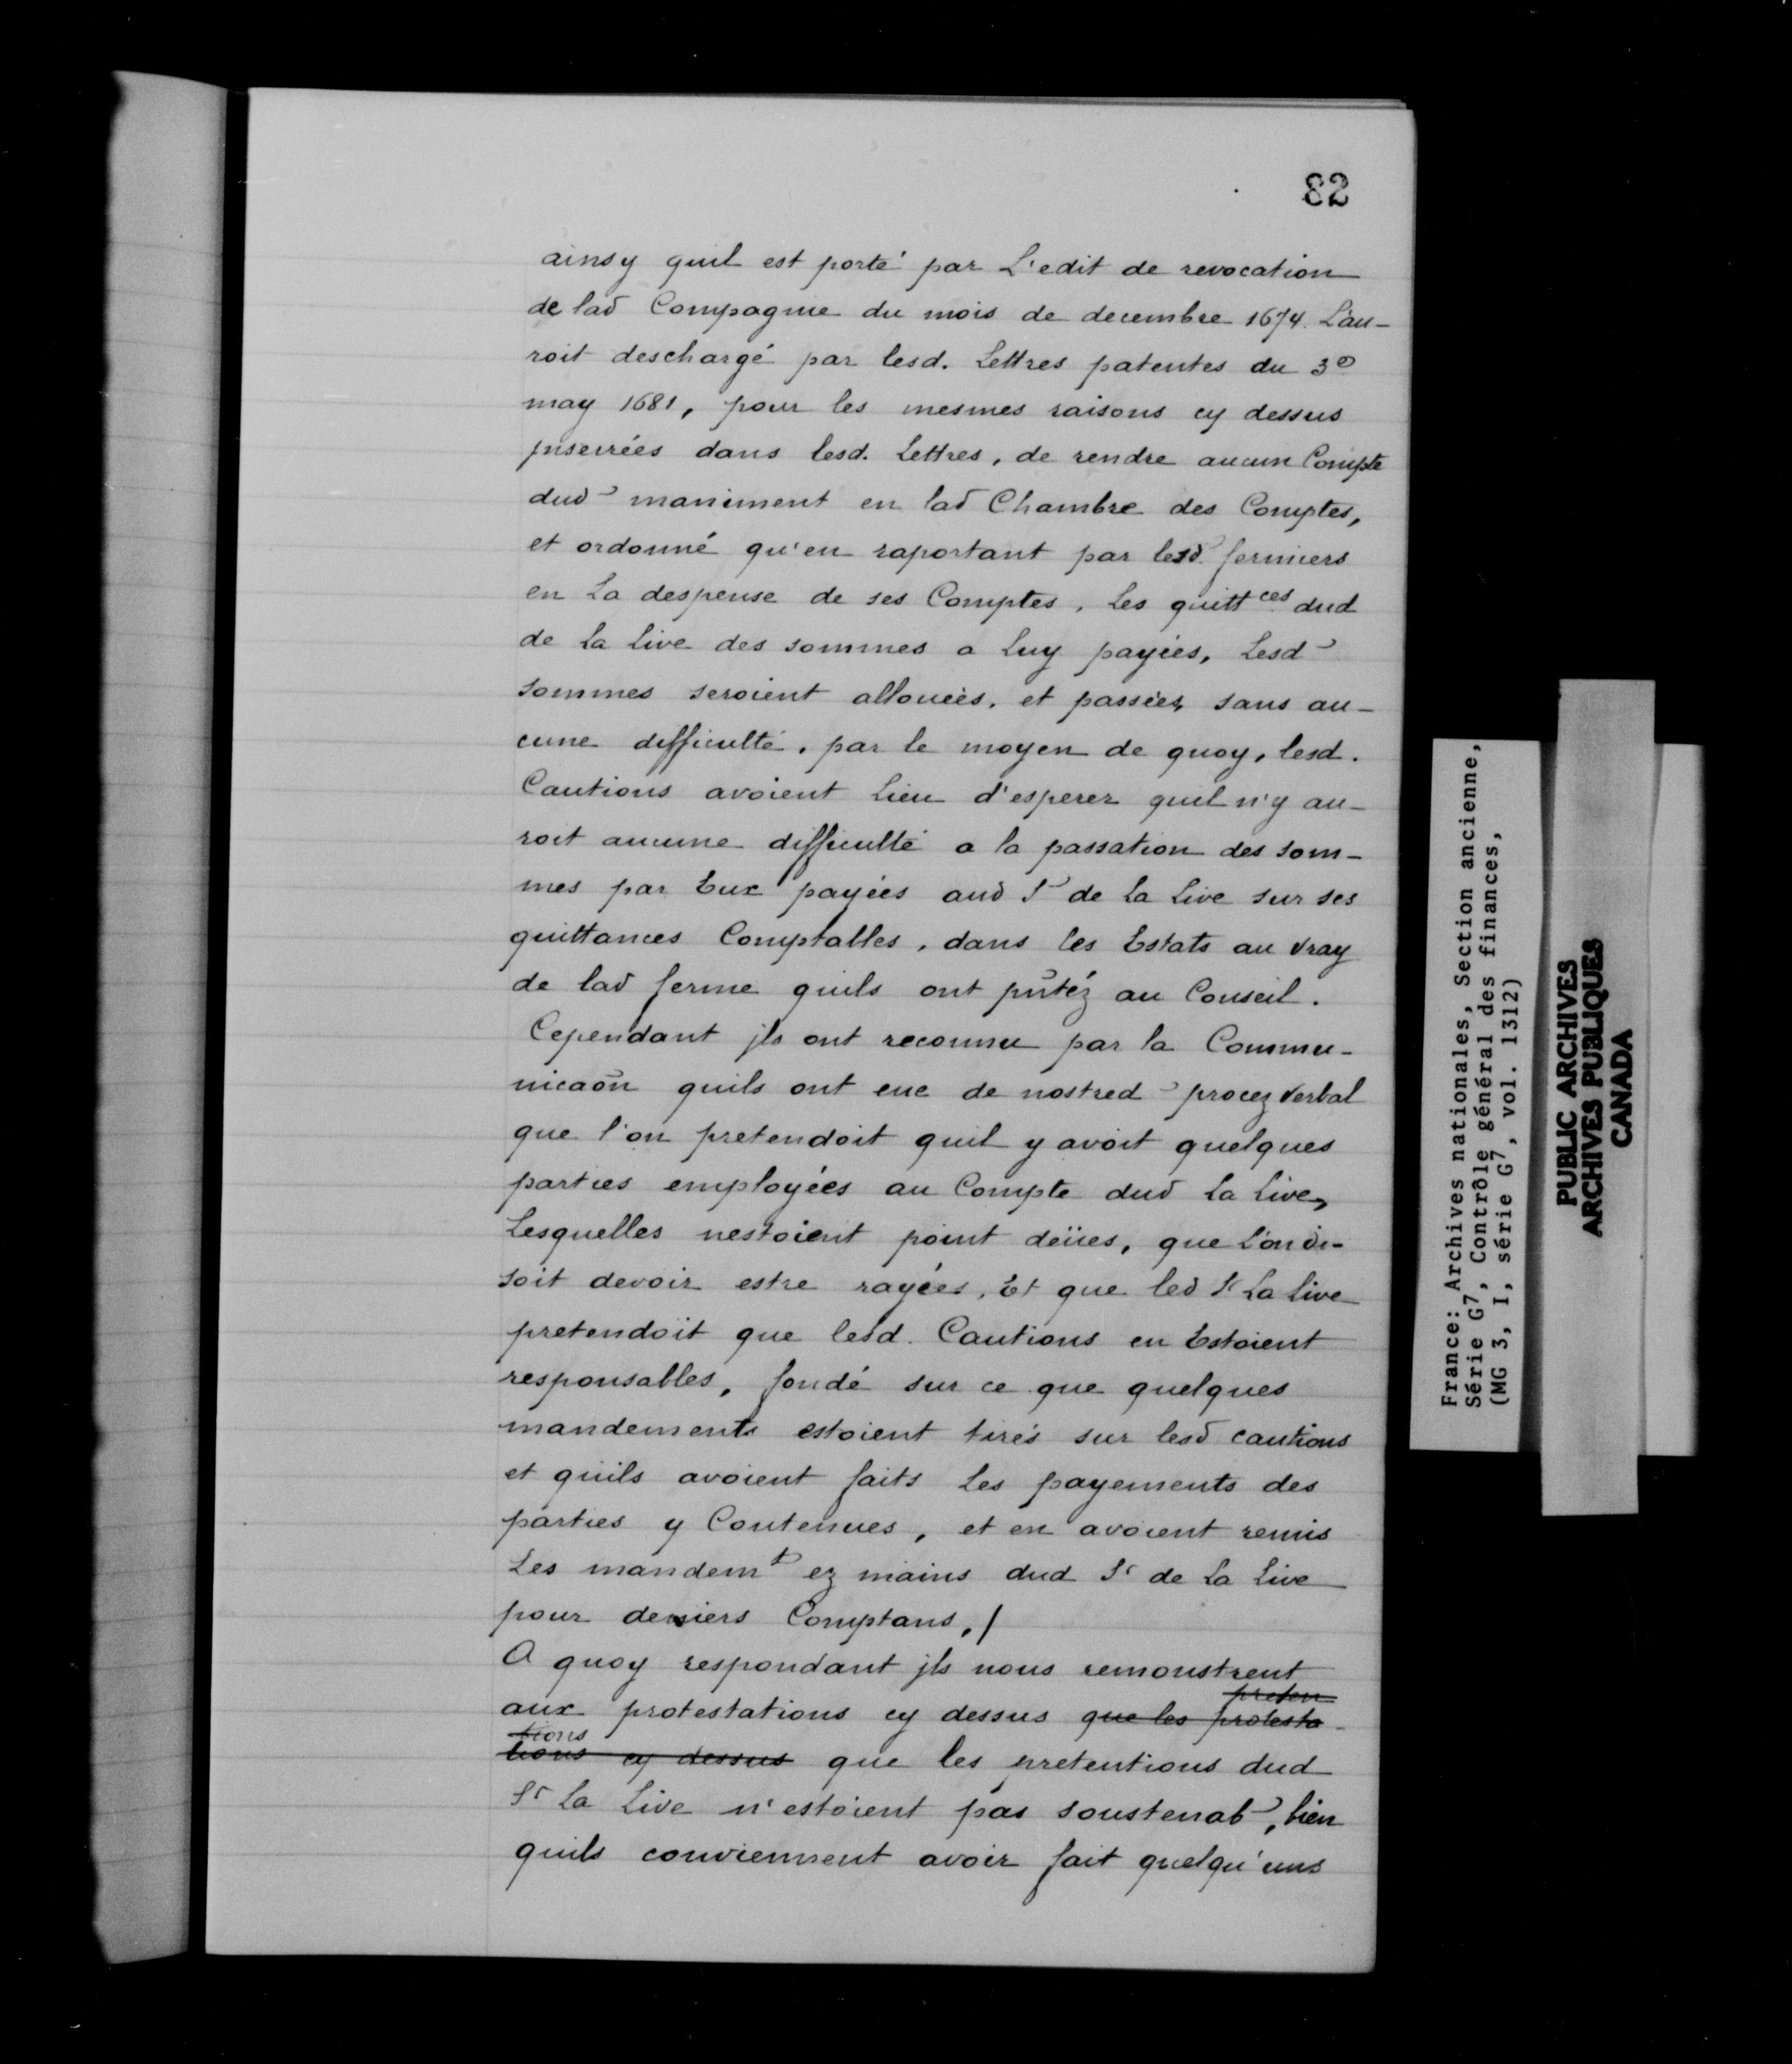 82
ainsy quil est porté par L'edit de revocation
de lad Compagnie du mois de decembre 1674. L'au-
roit deschargé par lesd. Lettres patentes du 3e
may 1681, pour les mesmes raisons cy dessus
jnserrées dans lesd. Lettres, de rendre aucun Compte
dud maniment en lad Chambre des Comptes,
et ordonné qu'en raportant par lesd. fermiers
en La despense de ses Comptes, Les quittces dud
de la Live des sommes a Luy payées, Lesd
sommes seroient allouées, et passées sans au-
cune difficulté, par le moyen de quoy, lesd.
Cautions avoient Lieu d'esperer quil n'y au-
roit aucune difficulté a la passation des som-
mes par Eux payées aud Sr de la Live sur ses
quittances Comptables, dans les Estats au vray
de lad ferme quils ont pñtéz au Conseil.
Cependant jls ont reconnu par la Commu-
nicaõn quils ont eue de nostred procez verbal
que l'on pretendoit quil y avoit quelques
parties employées au Compte dud La Live,
Lesquelles nestoient point deües, que L'on di-
soit devoir estre rayées, Et que led Sr La Live
pretendoit que lesd. Cautions en Estoient
responsables, fondé sur ce que quelques
mandements estoient tirés sur lesd cautions
et quils avoient faits Les payements des
parties y Contenues, et en avoient remis
Les mandemt ez mains dud Sr de La Live
pour deniers Comptans, /
A quoy respondant jls nous remonstrent
preten
aux protestations cy dessus que les protesta-
tions
tions cy dessus que les pretentions dud
Sr La Live n'estoient pas soustenab, bien
quils conviennent avoir fait quelqu'uns
France: Archives nationales, Section ancienne,
Série G7, Contrôle général des finances,
(MG 3, I, série G7, vol. 1312)
PUBLIC ARCHIVES
ARCHIVES PUBLIQUES
CANADA